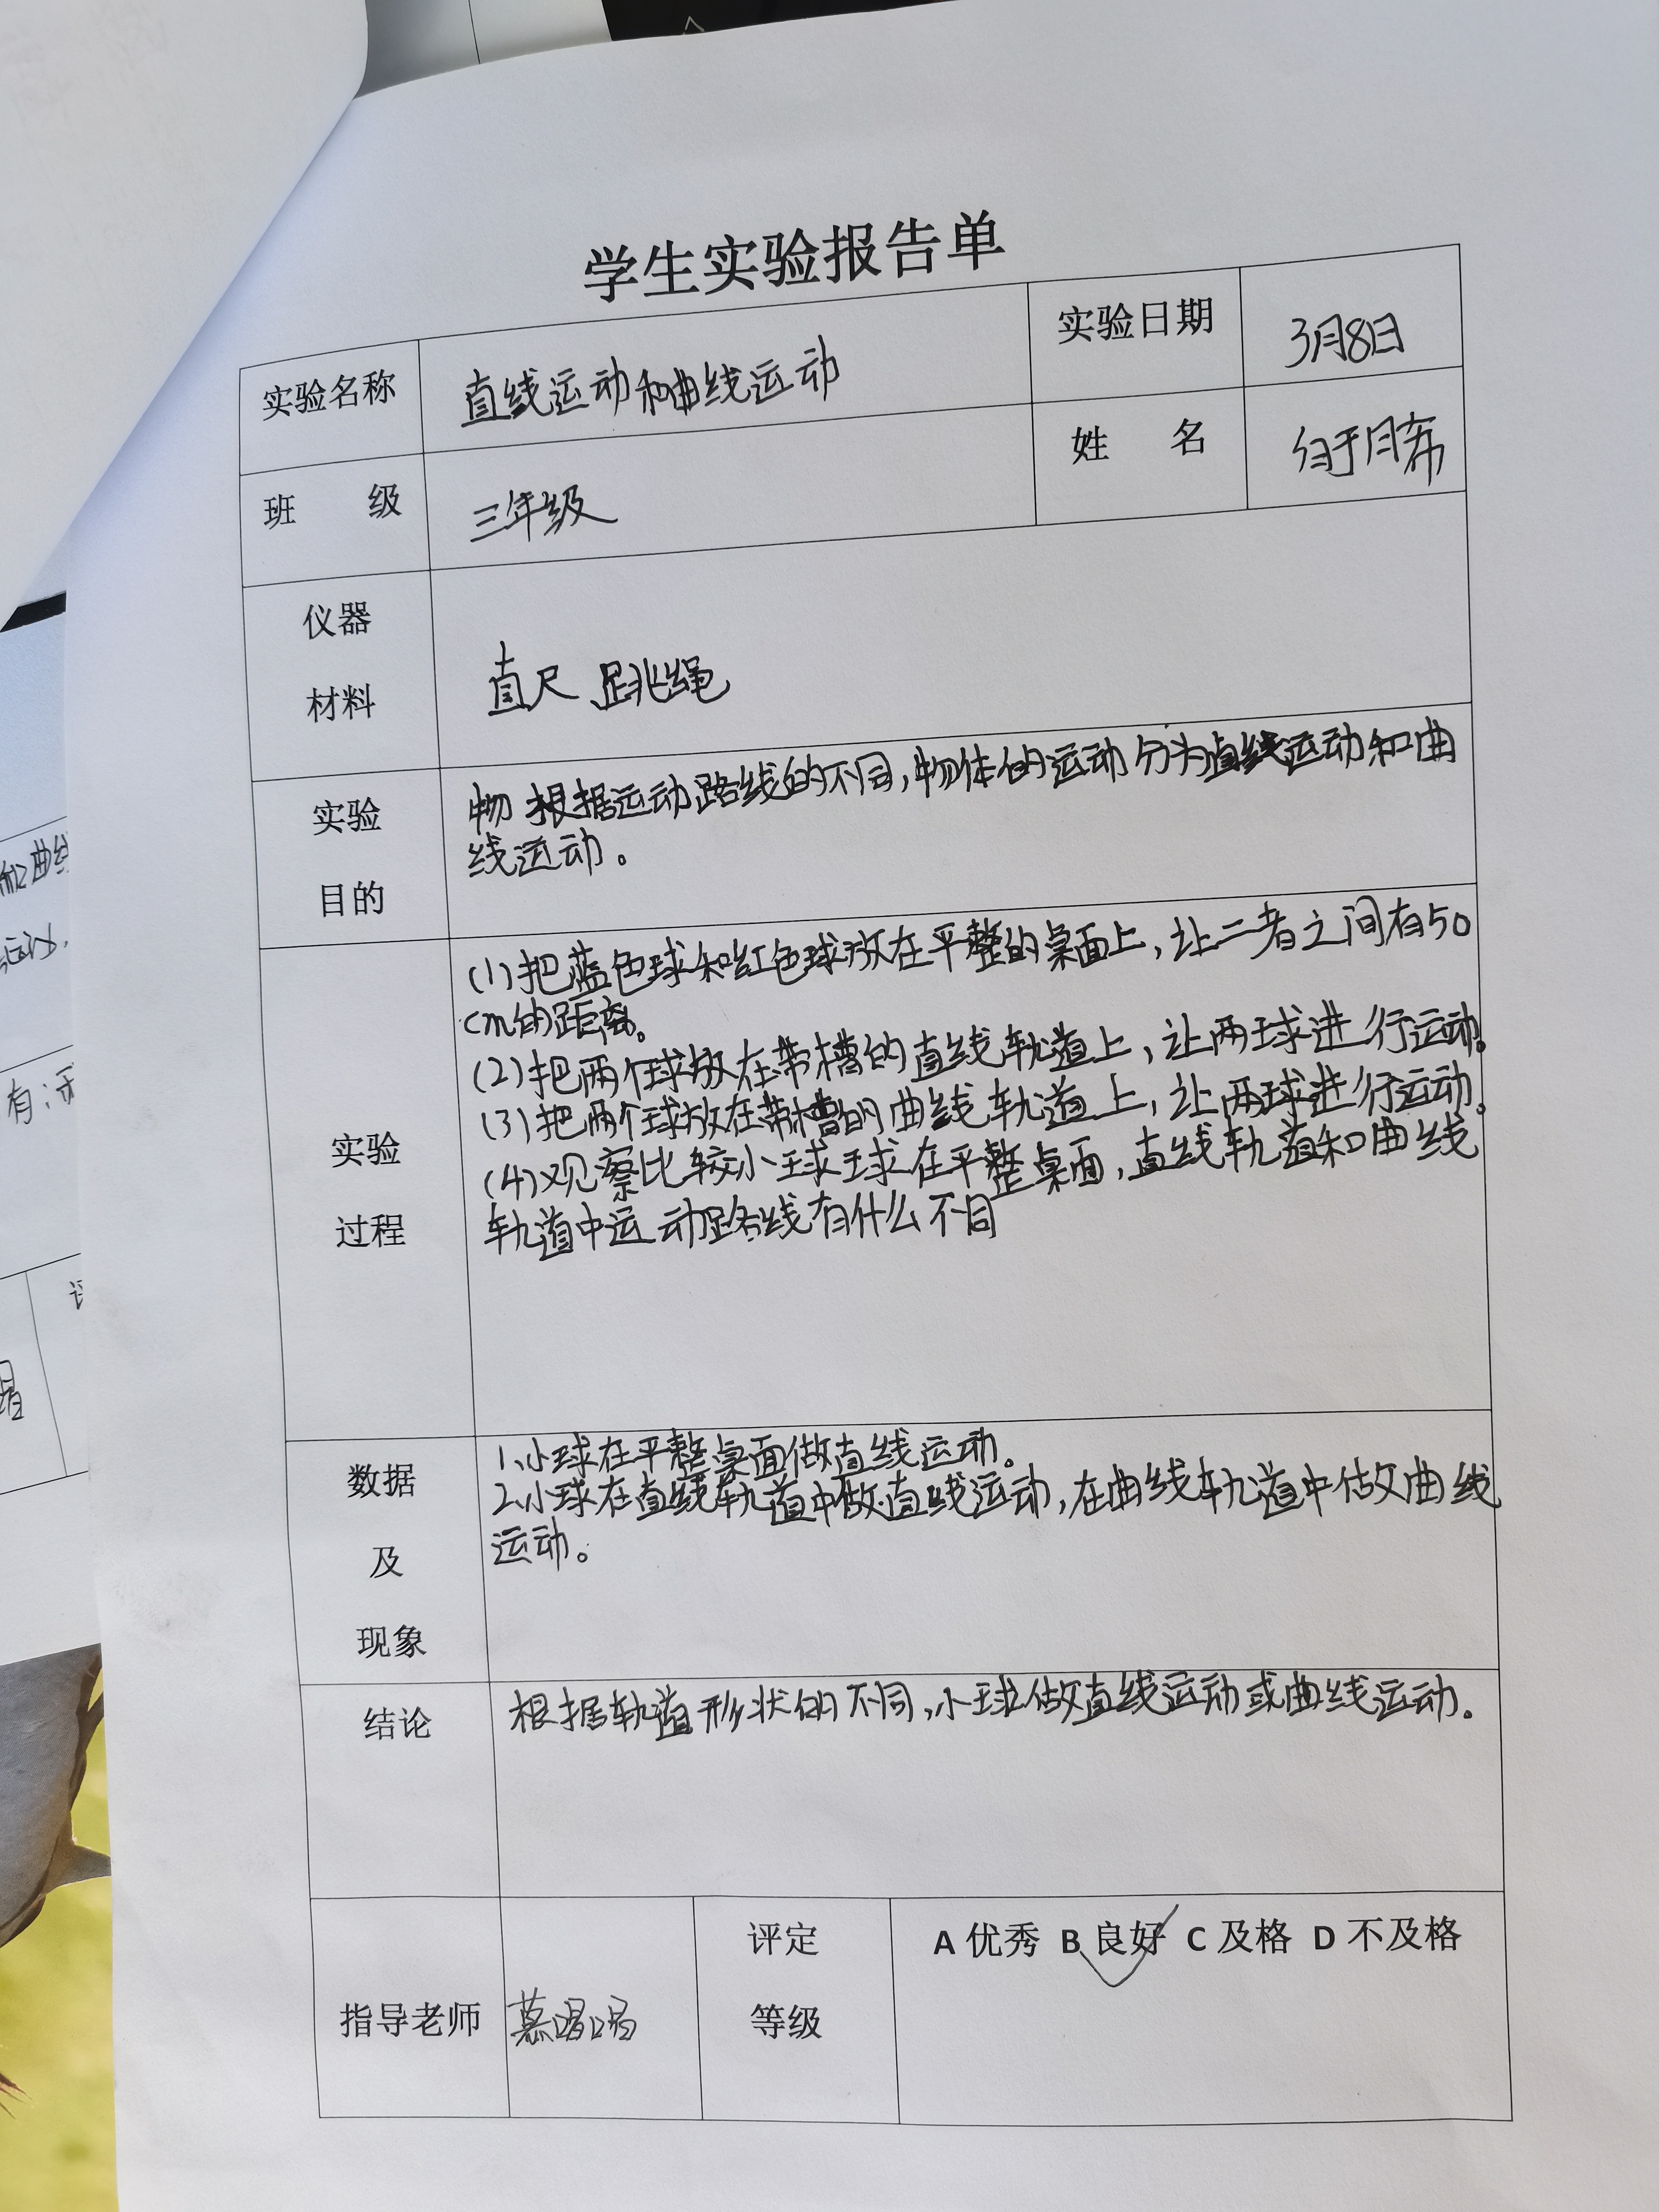 学生实验报告单
实验名称 直线运动和曲线运动 实验日期 3月8日
班 级 三年级 姓 名
仪器
材料
直尺 跳绳
实验
目的
物 根据运动路线的不同,物体的运动分为直线运动和曲
线运动。
实验
过程
(1)把蓝色球和红色球放在平整的桌面上,让二者之间有50
cm的距离。
(2)把两个球放在带槽的直线轨道上,让两球进行运动。
(3)把两个球放在带槽的曲线轨道上,让两球进行运动。
(4)观察比较小球球在平整桌面,直线轨道和曲线
轨道中运动路线有什么不同
数据
及
现象
1、小球在平整桌面做直线运动。
2、小球在直线轨道中做直线运动,在曲线轨道中做曲线
运动。
结论
根据轨道形状的不同,小球做直线运动或曲线运动。
指导老师
评定
等级
A 优秀 B 良好 C 及格 D 不及格
和曲线
运动.
有: